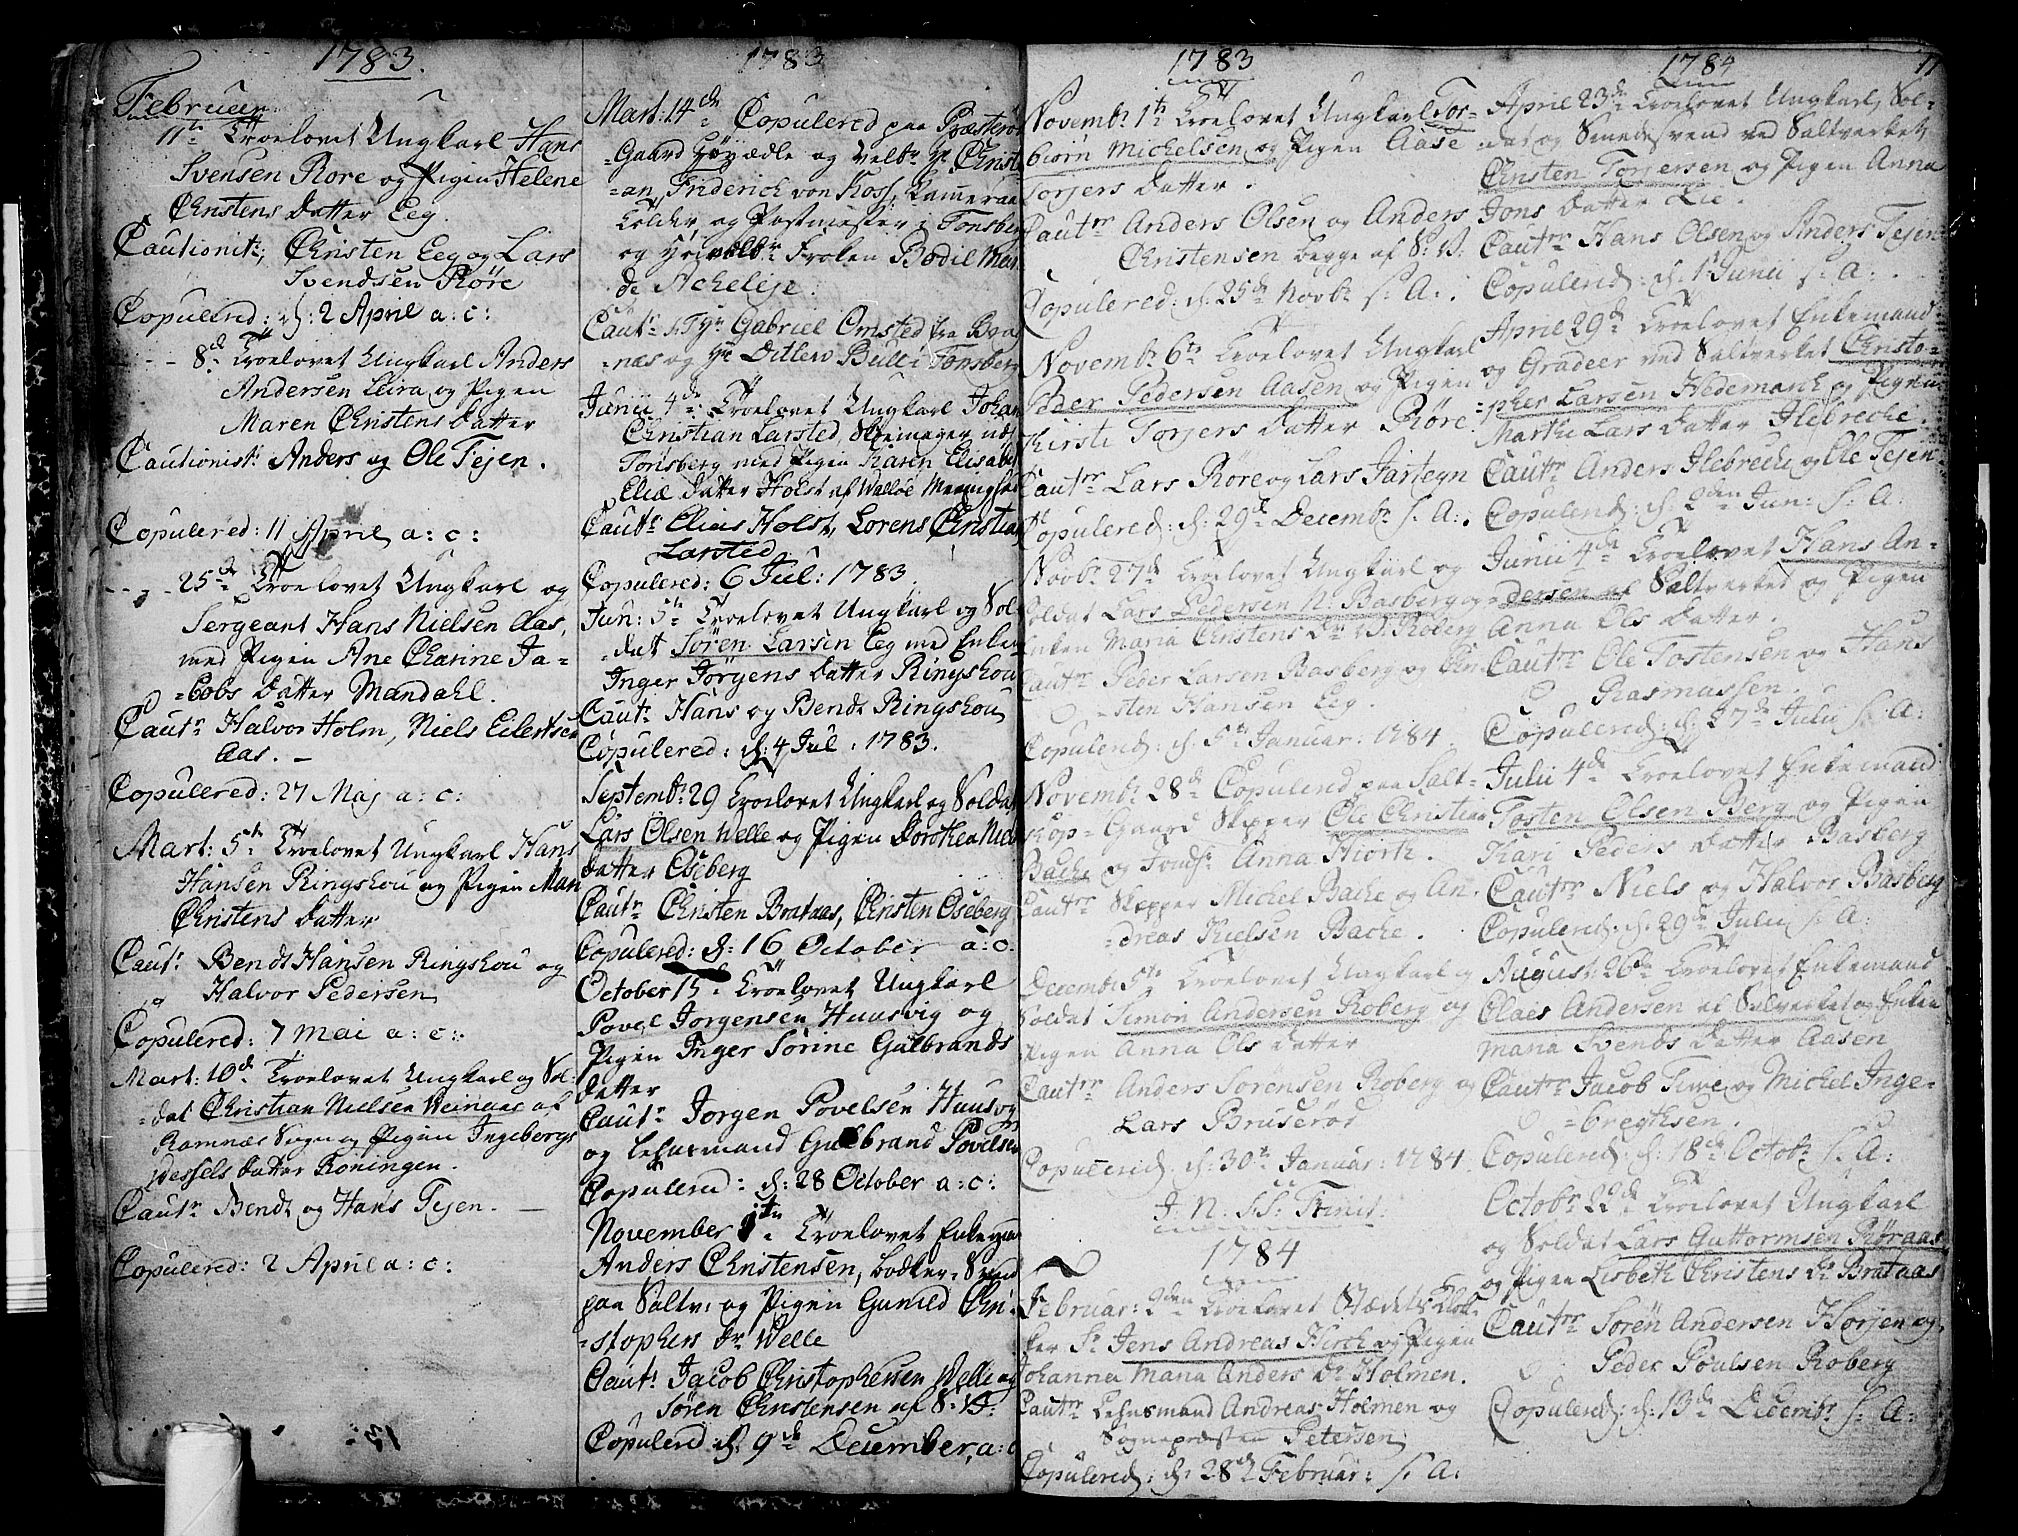 1783.
Februarii
11te Troelovet Ungkarl Hans
Svensen Rore og Pigen Helene
Christens Datter Eeg.
Cautionist: Christen Eeg og Lars
Svendsen Röre
Copulered: d: 2 April a: c:
8de Troelovet Ungkarl Anders
Andersen Leira og Pigen
Maren Christens Datter
Cautionist: Anders og Ole Tejen.
Copulered: 11 April a: c:
25de Troelovet Ungkarl og
Sergeant Hans Nielsen Aas,
med Pigen Ane Chatrine Ja-
=cobs Datter Mandahl.
Cautr Halvor Holm, Niels Eilertsen
Aas. —
Copulered: 27 Maj a: c:
Mart: 5te Troelovet Ungkarl Hans
Hansen Ringshou og Pigen Mari
Christens Datter
Caut: Bendt Hansen Ringshou og
Halvor Pedersen
Copulered: 7 Mai a: c:
Mart: 10de Troelovet Ungkarl og Sol-
=dat Christian Nielsen af
Ramnæs Sogn og Pigen Ingeborg
Wessels Datter Röningen.
Cautr Bendt og Hans Tejen. —
Copulered: 2 April a: c:
1783
Mart: 14de Copulered paa Præsterö
=Gaard Höyædle og Velbr Hr Christi
=an Friderich von Koss, Kammeraa
og Postmester i Tonsberg
og Höivelbr Fröken Bodil Mar
de Acheleje.
Cautr Gabriel Omsted fra Bra
næs og Hr Ditlev Bull i Tonsberg
Junii 4de Troelovet Ungkarl Johan
Christian Larsted, Skomager ved
Tonsberg med Pigen Karen Elisabet
Eliæ Datter Holst af Walløe Menighed
Cautr Elias Holst, Lorens Christian
Larsted
Copulered: 6 Jul: 1783
Jun: 5te Troelovet Ungkarl og Sol-
=dat Sören Larsen Eeg med Enken
Inger Jörgens Datter Ringshou
Cautr Hans og Bendt Ringshou
Copulered: d: 4 Jul: 1783.
Septembr: 29 Troelovet Ungkarl og Soldat
Lars Olsen Welle og Pigen Dorothea Niels
Datter Oseberg
Cautr Christen Brataas, Christen Oseberg
Copulered: d: 16 October a: c:
October 15de Troelovet Ungkarl
Povel Jorgensen Huusvig og
Pigen Inger Sörine Gulbrands
Datter
Cautr Jorgen Povelsen Huusvg
og Lehnsmand Gulbrand Povelsen
Copulered: d: 28 October a: c:
November 1te Troelovet Enkemand
Anders Christensen, Bödker-Svend
paa Saltv: og Pigen Gunild Chri-
=stophers Dr Welle
Caut: Jacob Christophersen Welle og
Sören Christensen af S: V:
Copulered d: 9de December, a: c
1783
Novembr: 1te Troelovet Ungkarl Tor-
biorn Michelsen og Pigen Aase
Torjers Datter.
Cautrr Anders Olsen og Anders
Christensen begge af S: V:
Copulered: d: 25de Novbr s: A:
Novembr: 6te Troelovet Ungkarl
Peder Pedersen Aasen og Pigen
Kirsti Torjers Datter Röre
Cautrr Lars Röre og Lars Jartegn
Copulered: d: 29de Decembr s: A:
Novbr 27de Troelovet Ungkarl og
Soldat Lars Pedersen N: Basberg og
Enken Maria Christens Dr Roberg
Cautrr Peder Larsen Basberg og Chri
=sten Hansen Eeg.
Copulered: d: 5te Januar: 1784
Novembr: 28de Copulered paa Salt-
=Gaard Skipper Ole Christian
Bache og Anna Hiorth.
Cautrr Skipper Michel Bache og An-
=dreas Nielsen Bache.
Decembr: 5te Troelovet Ungkarl og
Soldat Simon Andersen Roberg og
Pigen Anna Ols Datter
Cautrr Anders Sorensen Roberg og
Lars Bruserød
Copulered: d: 30te Januar: 1784
J. N. SS: Trinit:
1784
Februar: 2den Troelovet Stædets Klok-
ker Sr Jens Andreas Hirch og Pigen
Johanna Maria Anders Dr Holmen.
Cautrr Lehnsmand Andreas Holmen og
Sognepræsten Petersen
Copulered: d: 28de Februar: s: A:
1784
11
April 23de Troelovet Ungkarl, Sol-
dat og Smedesvend ved Saltverket
Christen Torjersen og Pigen Anna
Jons Datter Lie.
Cautrr Hans Olsen og Anders Tejen
Copulered: d: 1 Junii s: A:
April 29de Troelovet Enkemand
og Gradeer ved Saltverket Christo-
=pher Larsen Hedemark og Pigen
Marthe Lars Datter Ilebreche.
Cautrr Anders Ilebreche og Ole Tejen
Copulered: d: 2den Jun: s: A:
Junii 4de Troelovet Hans An-
=dersen af Saltverket og Pigen
Anna Ols Datter.
Cautrr Ole Tostensen og Hans
Rasmussen.
Copulered: d: 27de Julii s: A:
Julii 4de Troelovet Enkemand
Tosten Olsen Berg og Pigen
Kari Peders Datter Basberg
Cautrr Niels og Halvor Basberg
Copulered: d: 29de Julii s: A:
August: 26de Troelovet Enkemand
Claes Andersen af Salverket og Enken
Maria Svends Datter Aasen
Cautrr Jacob Tuve og Michel Inge-
=brethsen.
Copulered: d: 18de Octobr s: A:
Octobr 22de Troelovet Ungkarl
og Soldat Lars Guttormsen Röraas
og Pigen Lisbeth Christens Dr Brataas
Cautrr Sören Andersen Horjen og
Peder Poulsen Roberg
Copulered: d: 13de Decembr s: A: